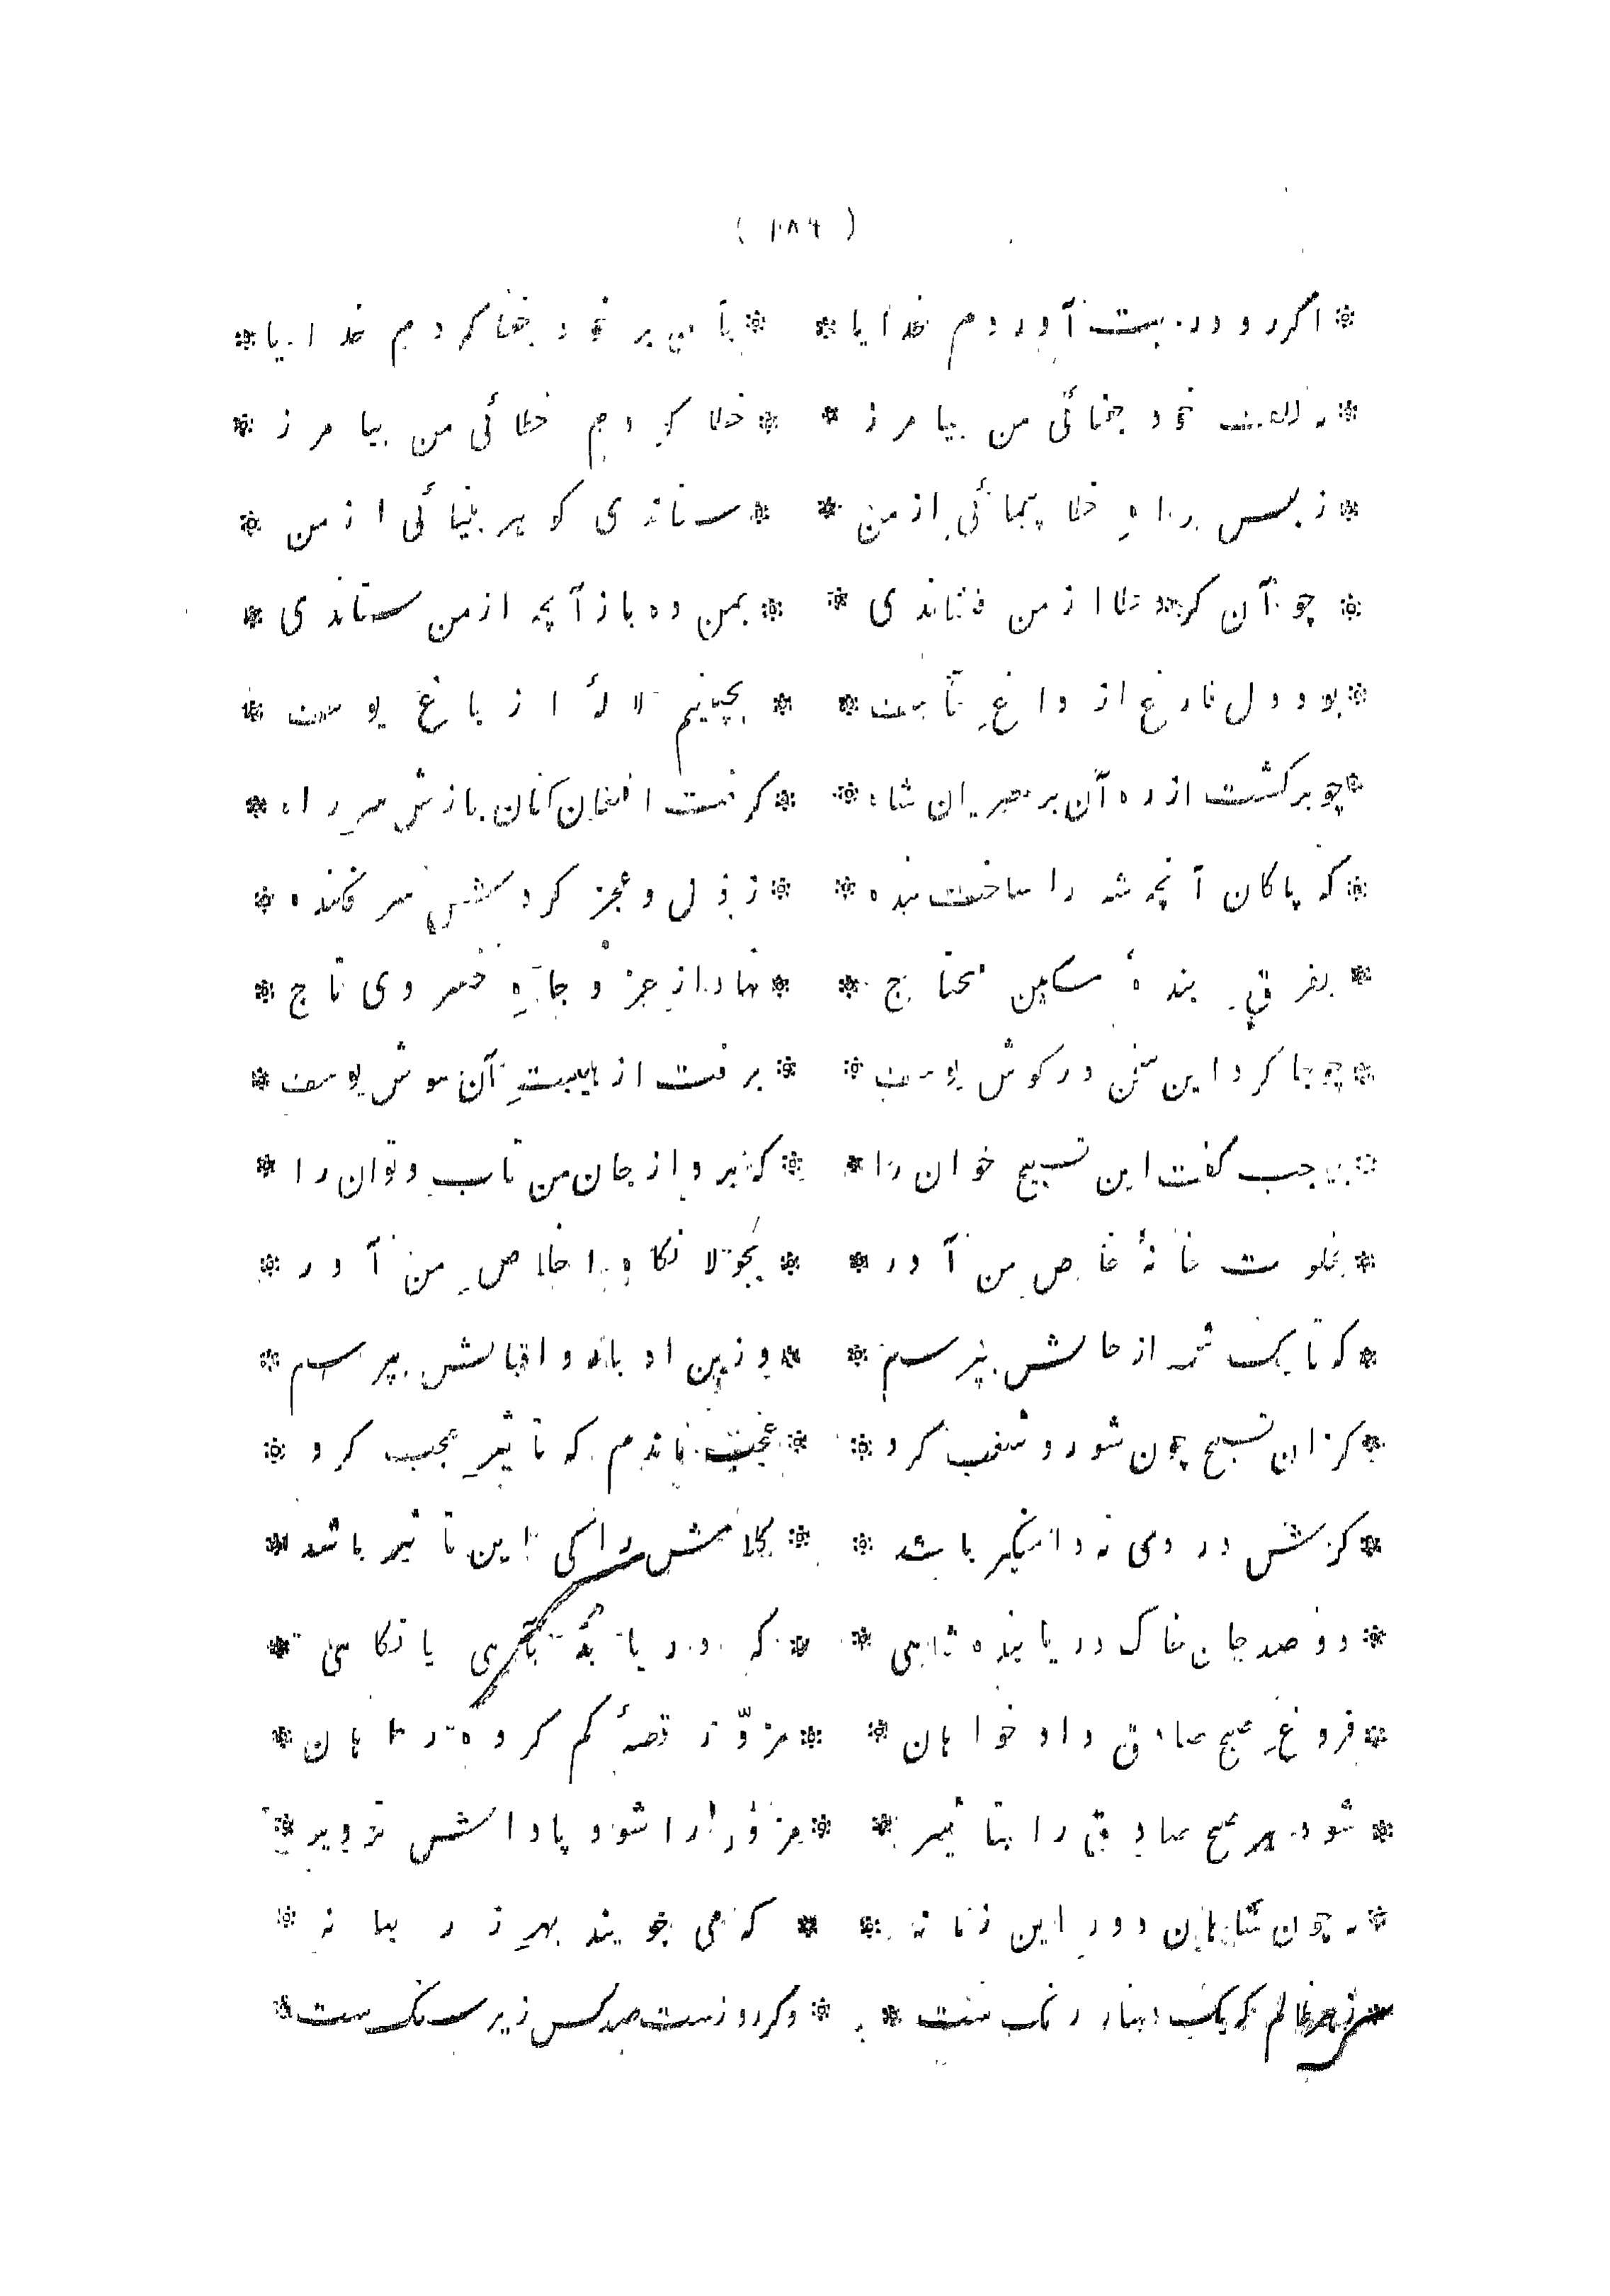 ( ۱۸۶ )
* اگر رو در بت آوردم خدایا * * بآن بر خود جفا کردم خدایا *
* بلطف خود جفائی من بیامرز * * خطا کردم خطائی من بیامرز *
* ز بس راهِ خطا پیمائی از من * * ستاندی گوهر بینائی از من *
* چو آن گرد خطا از من فشاندی * * بمن ده باز آنچه از من ستاندی *
* بود دل فارغ از داغِ تأسف * * بچینم لالۂ از باغ یوسف *
* چو برگشت از ره آن بر مصریان شاه * * گرفت افغان کنان بازش سرِ راه *
* که پاکان آنچه شه را ساخت بنده * * ز ذل و عجز کردش سر فکنده *
* بفرقِ بندۂ مسکین محتاج * * نهاد از عز و جاهِ خسروی تاج *
* چو جا کرد این سخن در گوش یوسف * * برفت از هیبتِ آن هوش یوسف *
* بحاجب گفت این تسبیح خوان را * * که برد از جان من تاب و توان را *
* بخلوت خانۂ خاص من آور * * بجولانگاه اخلاصِ من آور *
* که تا یک شمه از حالش بپرسم * * وزین ادبار و اقبالش بپرسم *
* کزان تسبیح چون شور و شغب کرد * * عجب ماندم که تاثیرِ عجب کرد *
* گرش دردی نه دامنگیر باشد * * کلامش را کی این تاثیر باشد *
* دو صد جان خاک دریابنده شاهی * * که دریابد بآهی یا نگاهی *
* فروغِ صبح صادق دادخواهان * * مزوّر قصۂ گم کرده راهان *
* شود هر صبح صادق را بتاثیر * * مزور را شود پاداش تزویر *
* نه چون شاهان دور این زمانه * * که می جویند بهرِ زر بهانه *
* ز هر ظالم که یک دینار رنگ ست * * وگر روزست صد کس زیر سنگ ست *